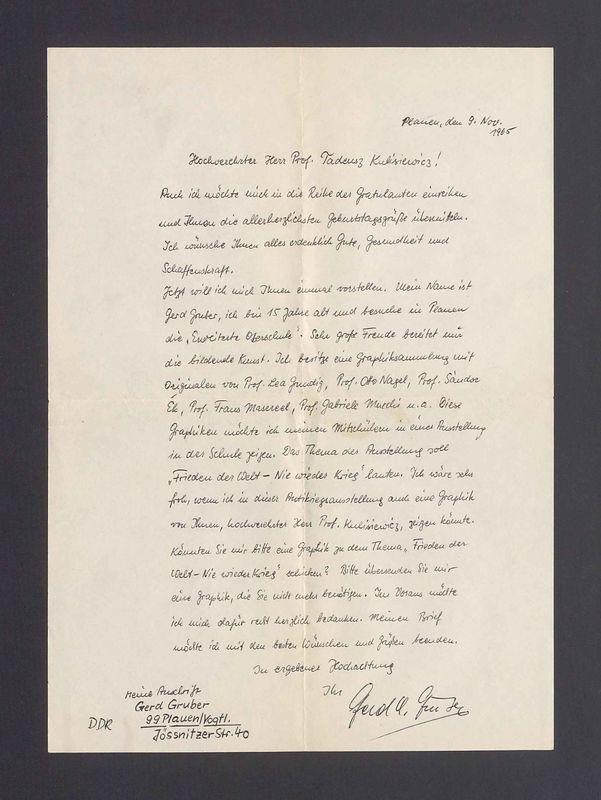 Plauen, den 9. Nov.
1965
Hochverehrter Herr Prof. Tadeusz Kulisiewicz!
Auch ich möchte mich in die Reihe der Gratulanten einreihen
und Ihnen die allerherzlichsten Geburtstagsgrüße übermitteln.
Ich wünsche Ihnen alles erdenklich Gute, Gesundheit und
Schaffenskraft.
Jetzt will ich mich Ihnen einmal vorstellen. Mein Name ist
Gerd Gruber, ich bin 15 Jahre alt und besuche in Plauen
die „Erweiterte Oberschule". Sehr große Freude bereitet mir
die bildende Kunst. Ich besitze eine Graphiksammlung mit
Originalen von Prof. Lea Grundig, Prof. Otto Nagel, Prof. Sándor
Ék, Prof. Frans Masereel, Prof. Gabriele Mucchi u. a. Diese
Graphiken möchte ich meinen Mitschülern in einer Ausstellung
in der Schule zeigen. Das Thema der Ausstellung soll
„Frieden der Welt – Nie wieder Krieg" lauten. Ich wäre sehr
froh, wenn ich in dieser Antikriegsausstellung auch eine Graphik
von Ihnen, hochverehrter Herr Prof. Kulisiewicz, zeigen könnte.
Könnten Sie mir bitte eine Graphik zu dem Thema „Frieden der
Welt – Nie wieder Krieg" schicken? Bitte übersenden Sie mir
eine Graphik, die Sie nicht mehr benötigen. Im Voraus möchte
ich mich dafür recht herzlich bedanken. Meinen Brief
möchte ich mit den besten Wünschen und Grüßen beenden.
In ergebener Hochachtung
Ihr
Gerd Gruber
Meine Anschrift
Gerd Gruber
DDR 99 Plauen/Vogtl.
Jössnitzer Str. 40